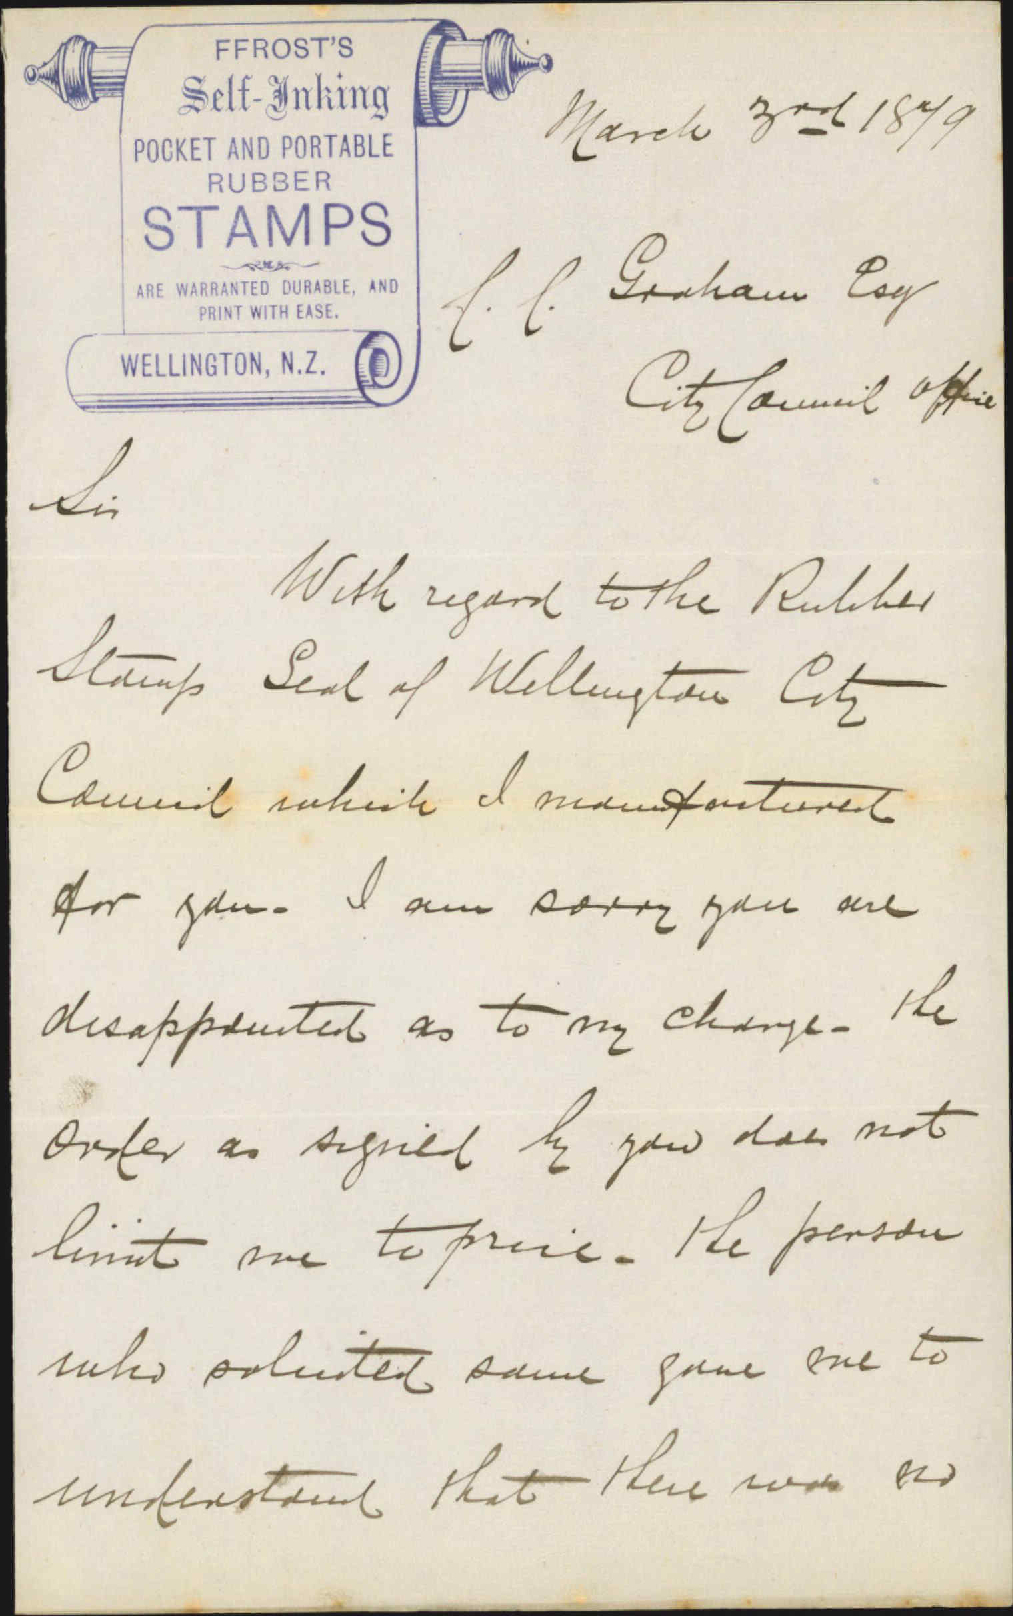 FFROST'S
Self-Inking
POCKET AND PORTABLE
RUBBER
STAMPS
ARE WARRANTED DURABLE, AND
PRINT WITH EASE.
WELLINGTON, N.Z.
March 3rd 1879
C. C. Graham Esq
City Council office
Sir
With regard to the Rubber
Stamp Seal of Wellington City
Council which I manufactured
for you - I am sorry you are
disappointed as to my charge - the
order as signed by you does not
limit me to price - the person
who solicited same gave me to
understand that there was no